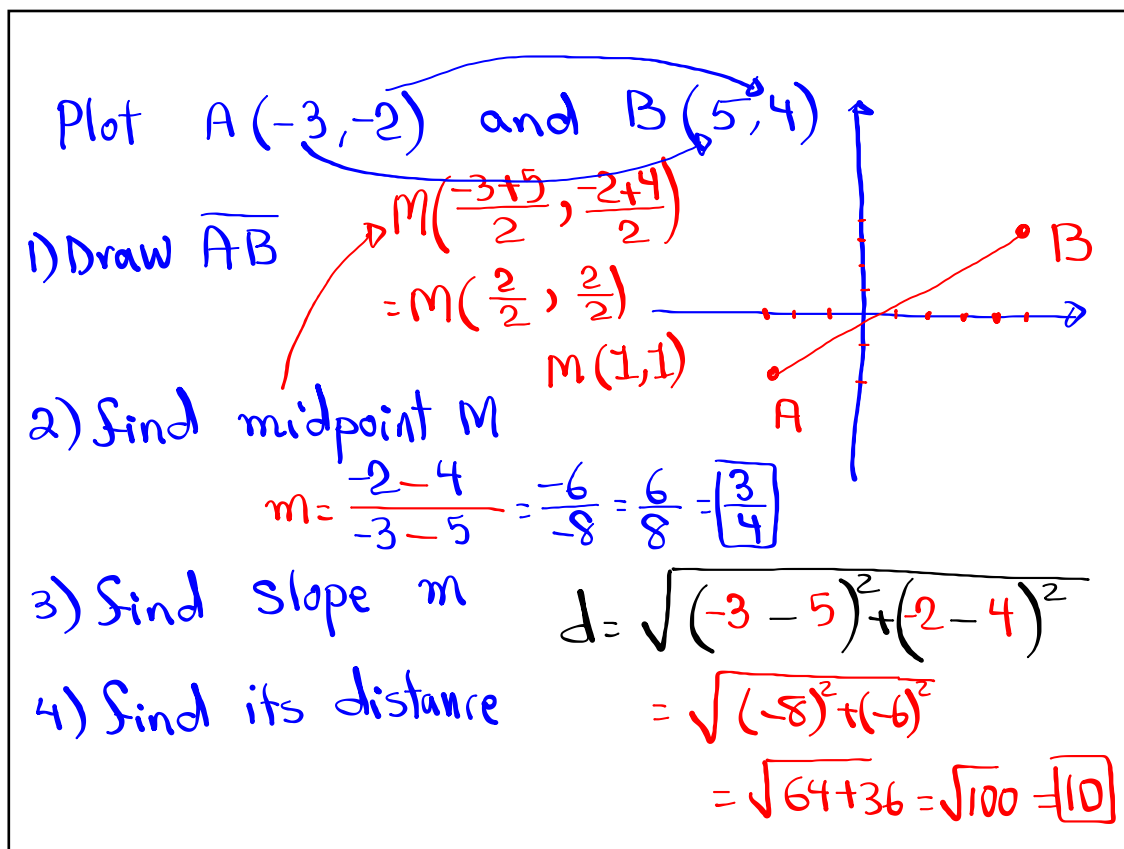 Plot A(-3,-2) and B(5,4)
M(\frac{-3+5}{2}, \frac{-2+4}{2})
1) Draw \overline{AB}
= M(\frac{2}{2}, \frac{2}{2})
M(1,1)
B
A
2) find midpoint M
m = \frac{-2-4}{-3-5} = \frac{-6}{-8} = \frac{6}{8} = \frac{3}{4}
3) find slope m
d = \sqrt{(-3-5)^2+(-2-4)^2}
4) find its distance
= \sqrt{(-8)^2+(-6)^2}
= \sqrt{64+36} = \sqrt{100} = 10